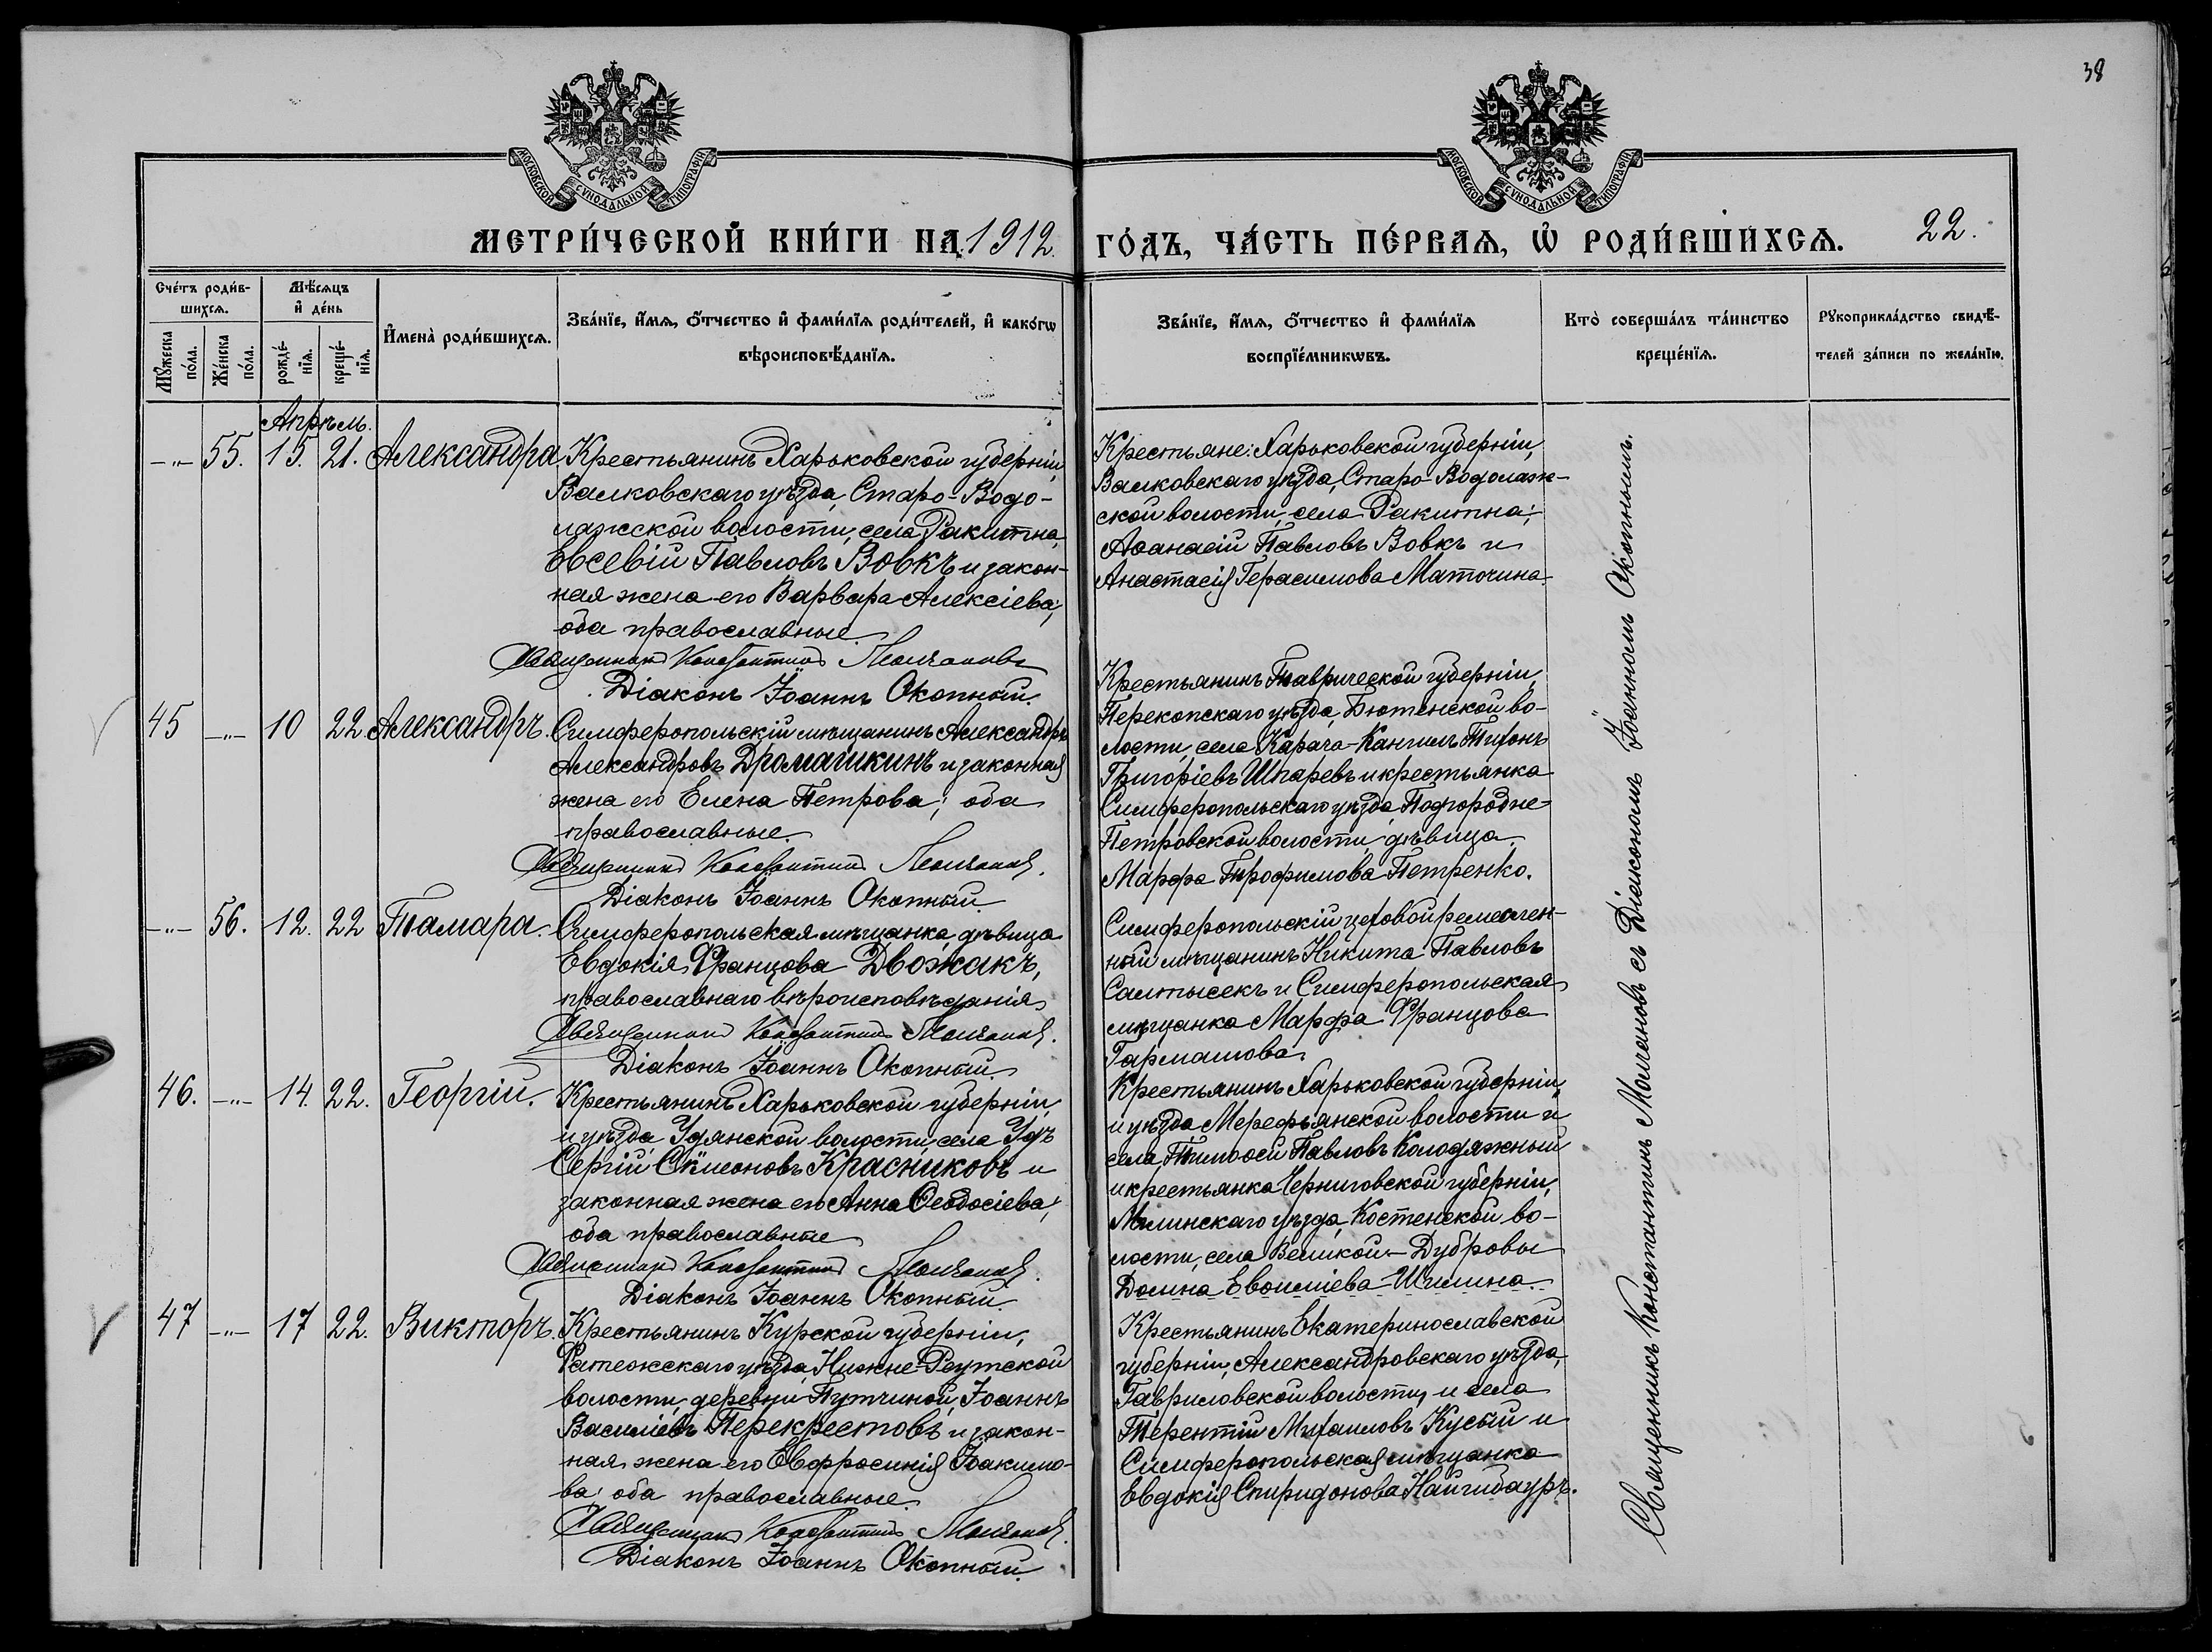 38
МОСКОВСКОЙ СѴНОДАЛЬНОЙ ТИПОГРАФІИ
МОСКОВСКОЙ СѴНОДАЛЬНОЙ ТИПОГРАФІИ
МЕТРИ́ЧЕСКОЙ КНИ́ГИ НА 1912 ГО́ДЪ, ЧА́СТЬ ПЕ́РВАЯ, Ѡ҆ РОДИ́ВШИХСѦ. 22.
Сче́тъ роди́в-
шихсѧ.
Мꙋ́жеска по́ла.
Же́нска по́ла.
Мѣ́сѧцъ
и҆ де́нь
рожде́-
нїѧ.
креще́-
нїѧ.
И҆мена̀ роди́вшихсѧ.
Зва́нїе, и҆́мѧ, ѻ҆́тчество и҆ фами́лїѧ роди́телей, и҆ како́гѡ
вѣроисповѣ́данїѧ.
Зва́нїе, и҆́мѧ, ѻ҆́тчество и҆ фами́лїѧ
воспрїе́мникѡвъ.
Кто̀ соверша́лъ та́инство
креще́нїѧ.
Рꙋкоприкла́дство свидѣ́-
телей за́писи по жела́нїю.
Апрѣль.
-"- 55. 15. 21. Александра
Крестьянинъ Харьковской губерніи,
Валковскаго уѣзда, Старо-Водо-
лажской волости, села Ракитна,
Евсевій Павловъ Вовкъ и закон-
ная жена его Варвара Алексіева;
оба православные.
Священникъ Константинъ Молчановъ
Діаконъ Іоаннъ Окопный.
Крестьяне: Харьковской губерніи,
Валковскаго уѣзда, Старо-Водолаж-
ской волости, села Ракитна:
Аѳанасій Павловъ Вовкъ и
Анастасія Герасимова Маточина.
45 -"- 10 22. Александръ.
Симферопольскій мѣщанинъ Александръ
Александровъ Дромашкинъ и законная
жена его Елена Петрова; оба
православные.
Священникъ Константинъ Молчановъ.
Діаконъ Іоаннъ Окопный.
Крестьянинъ Таврической губерніи,
Перекопскаго уѣзда, Бютенской во-
лости, села Карача-Кангилъ Тихонъ
Григоріевъ Шпаревъ и крестьянка
Симферопольскаго уѣзда, Подгородне-
Петровской волости, дѣвица
Марфа Трофимова Петренко.
-"- 56. 12. 22 Тамара.
Симферопольская мѣщанка, дѣвица
Евдокія Францова Двожакъ,
православнаго вѣроисповѣданія
Священникъ Константинъ Молчановъ.
Діаконъ Іоаннъ Окопный.
Симферопольскій цеховой ремеслен-
ный мѣщанинъ Никита Павловъ
Салтысекъ и Симферопольская
мѣщанка Марфа Францова
Гармашова.
46. -"- 14. 22. Георгій.
Крестьянинъ Харьковской губерніи
и уѣзда, Удянской волости, села Удъ
Сергій Сѵмеоновъ Красниковъ и
законная жена его Анна Ѳеодосіева;
оба православные
Священникъ Константинъ Молчановъ.
Діаконъ Іоаннъ Окопный.
Крестьянинъ Харьковской губерніи,
и уѣзда Мерефьянской волости и
села, Тимоѳей Павловъ Колодяжный
и крестьянка Черниговской губерніи,
Мглинскаго уѣзда, Костенской во-
лости, села Великой-Дубровы
Домна Евѳиміева Шилина.
47 -"- 17 22. Викторъ.
Крестьянинъ Курской губерніи,
Фатежскаго уѣзда, Нижне-Реутской
волости, деревни Путчиной, Іоаннъ
Василіевъ Перекрестовъ и закон-
ная жена его Евфросинія Іоакимо-
ва; оба православные.
Священникъ Константинъ Молчановъ.
Діаконъ Іоаннъ Окопный.
Крестьянинъ Екатеринославской
губерніи, Александровскаго уѣзда,
Гавриловской волости, и села
Терентій Михаиловъ Кусый и
Симферопольская мѣщанка
Евдокія Спиридонова Найгибауръ.
Священникъ Константинъ Молчановъ съ Діакономъ Іоанномъ Окопнымъ.